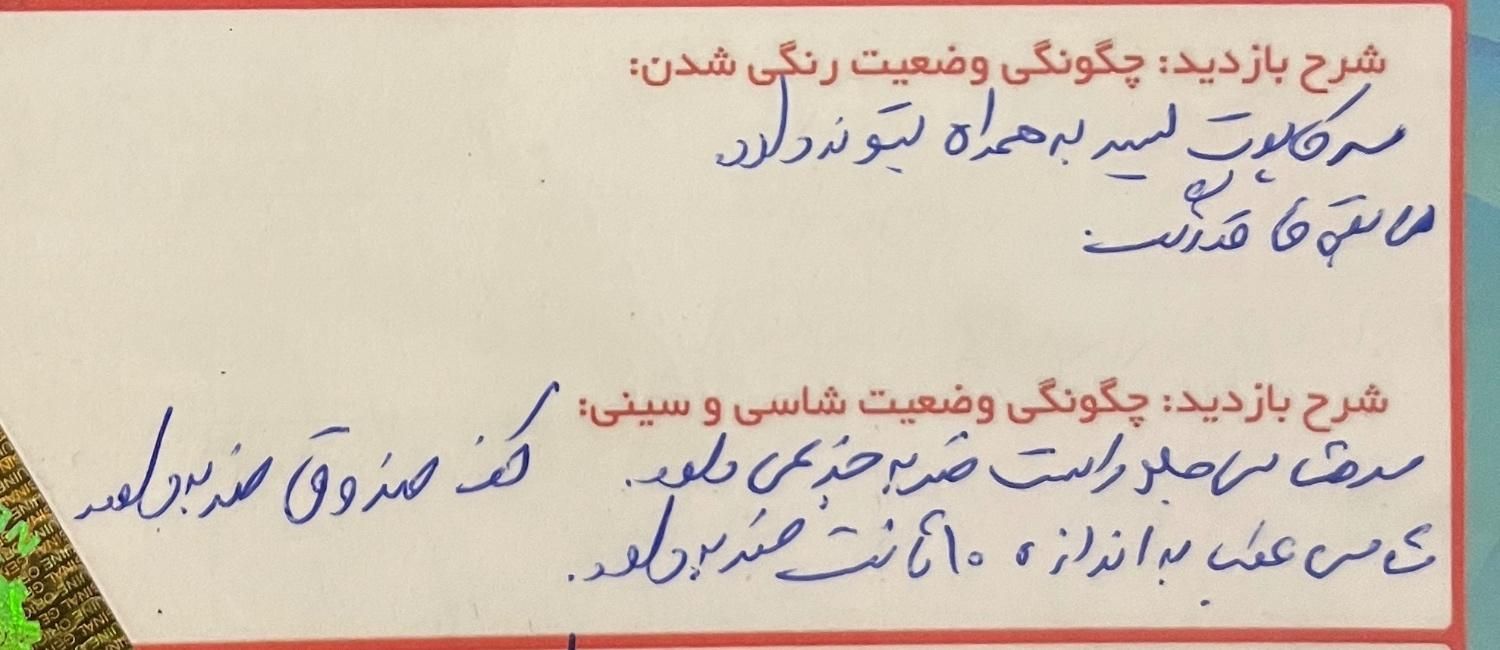 شرح بازدید: چگونگی وضعیت رنگی شدن:
سر کاپوت لیسه به همراه بتونه دارد
مابقی فاقد رنگ است
شرح بازدید: چگونگی وضعیت شاسی و سینی:
سر شاسی جلو راست ضربه جزئی دارد. کف صندوق ضربه دارد
شاسی عقب به اندازه ۱۰ سانت ضربه دارد.